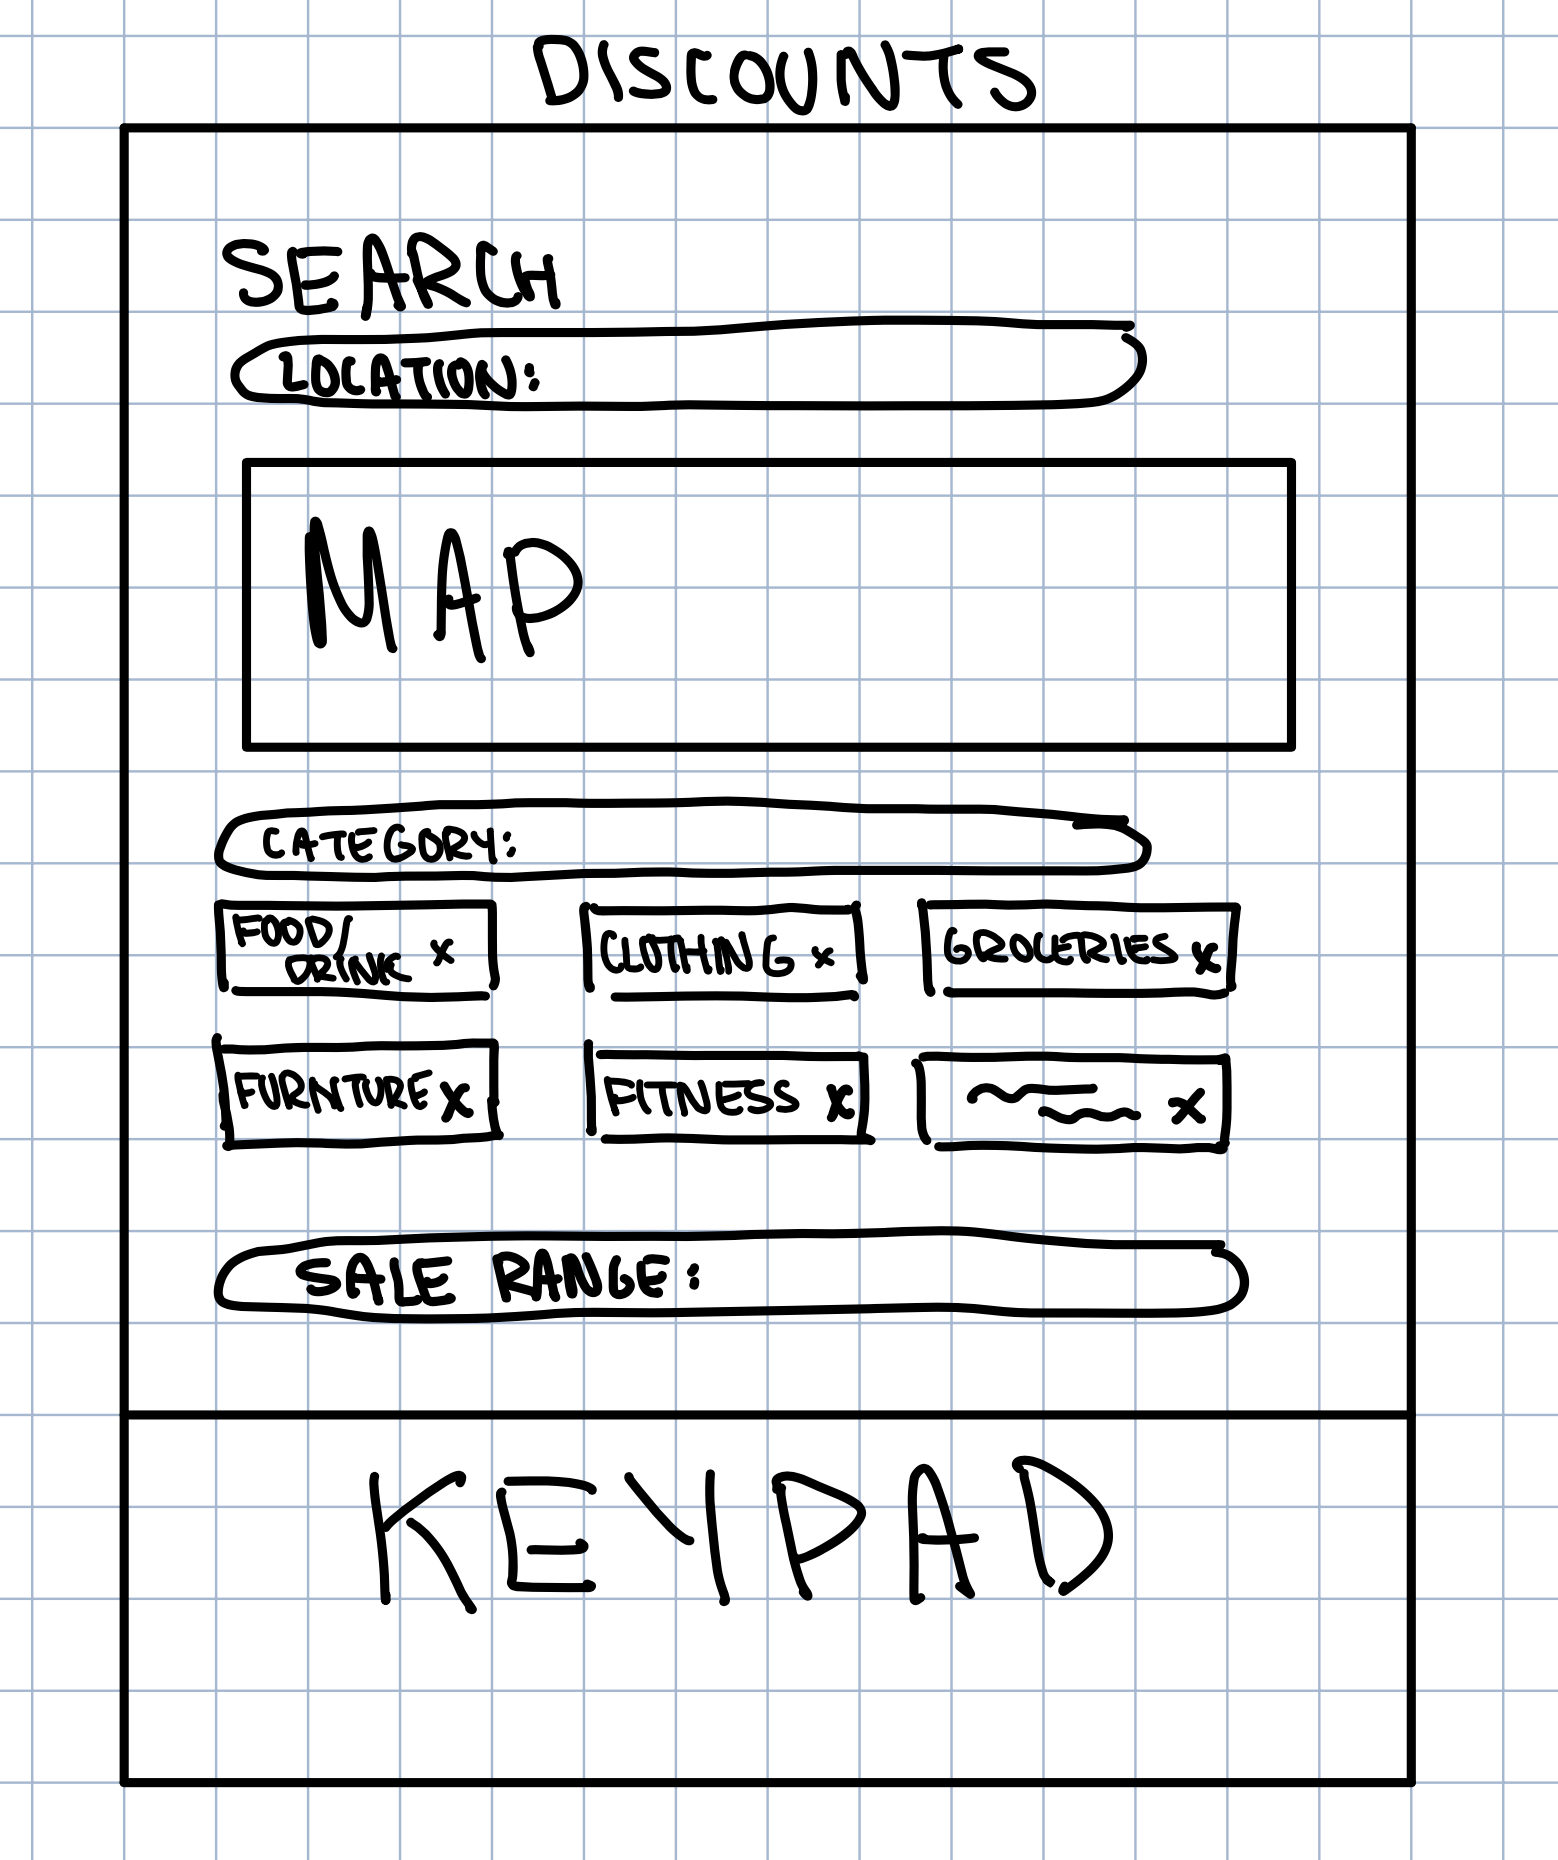 DISCOUNTS
SEARCH
LOCATION:
MAP
CATEGORY:
FOOD/
DRINK x
CLOTHING x
GROCERIES x
FURNITURE x
FITNESS x
x
SALE RANGE:
KEYPAD